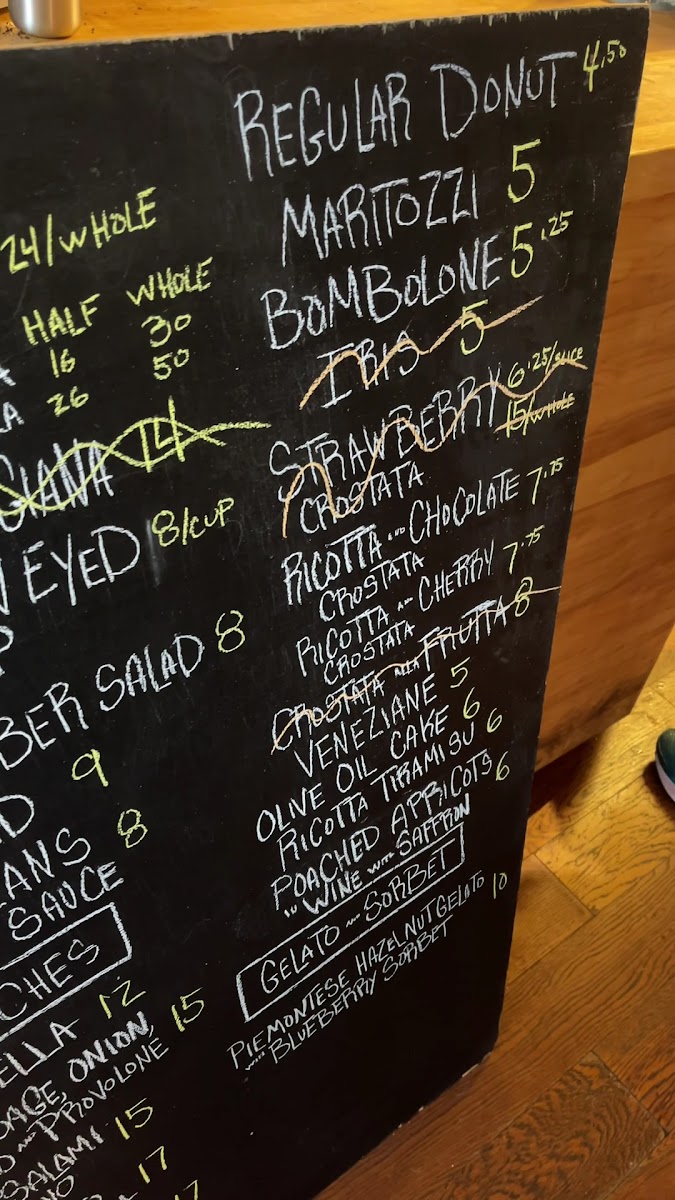 24/WHOLE
HALF WHOLE
16 30
26 50
14
EYED 8/CUP
SALAD 8
9
8
SAUCE
12
ONION, 15
PROVOLONE
SALAMI 15
17
17
REGULAR DONUT 4.50
MARITOZZI 5
BOMBOLONE 5.25
IRIS 5
STRAWBEBRRY 6.25/SLICE
15/WHOLE
CROSTATA
RICOTTA AND CHOCOLATE 7.75
CROSTATA
RICOTTA AND CHERRY 7.75
CROSTATA
CROSTATA ALLA FRUTTA 8
VENEZIANE 5
OLIVE OIL CAKE 6
RICOTTA TIRAMISU 6
POACHED APRICOTS 6
IN WINE WITH SAFFRON
GELATO AND SORBET
PIEMONTESE HAZELNUT GELATO 10
WITH BLUEBERRY SORBET